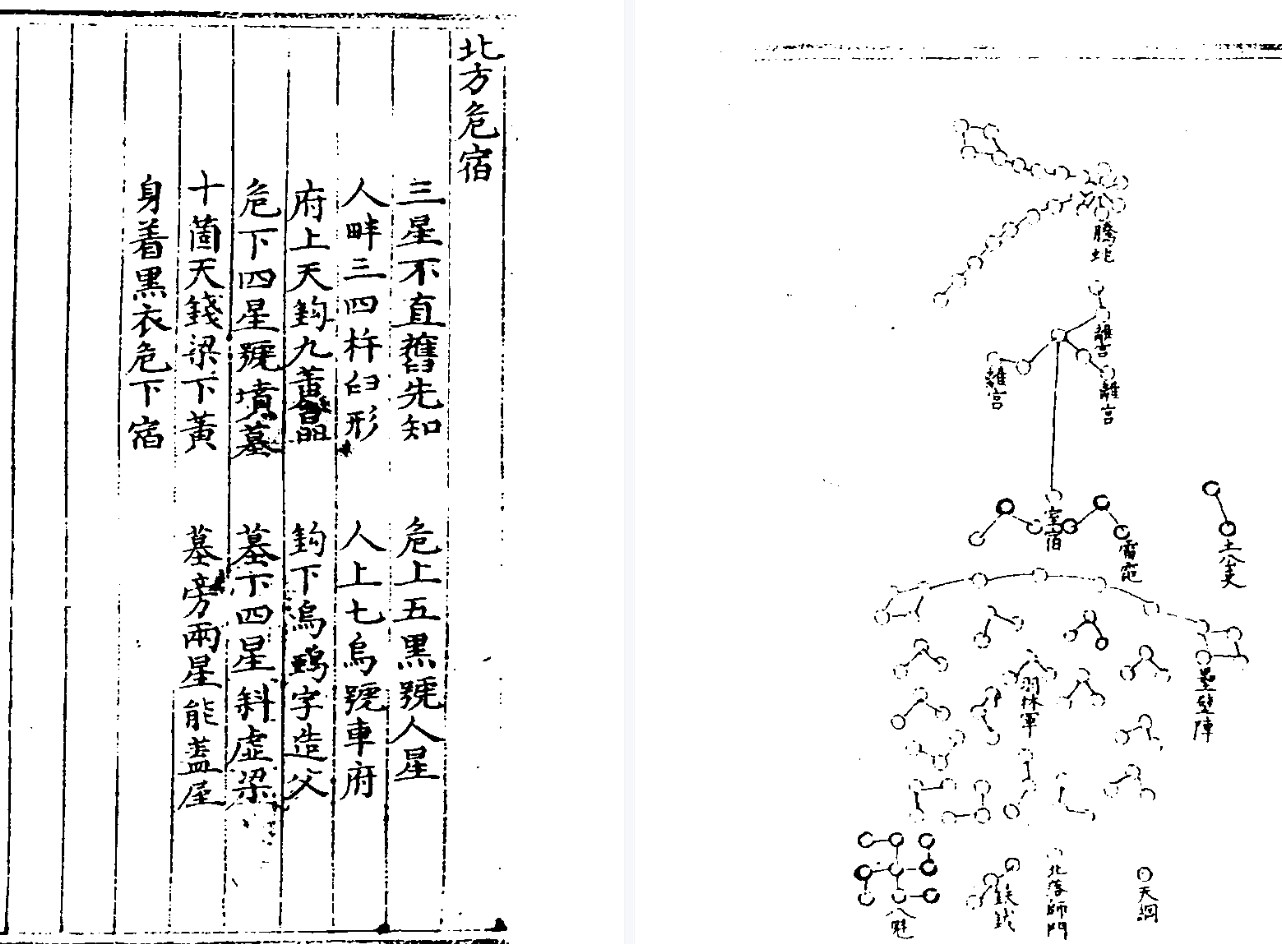 北方危宿
三星不直舊先知　危上五黑號人星
人畔三四杵臼形　人上七烏號車府
府上天鈎九黃晶　鈎下烏鵶字造父
危下四星號墳墓　墓下四星斜虛梁
十箇天錢梁下黃　墓旁兩星能蓋屋
身着黑衣危下宿
騰蛇
離宮
離宮
離宮
室宿
雷電
土公吏
壘壁陣
羽林軍
八魁
鈇鉞
北落師門
天綱